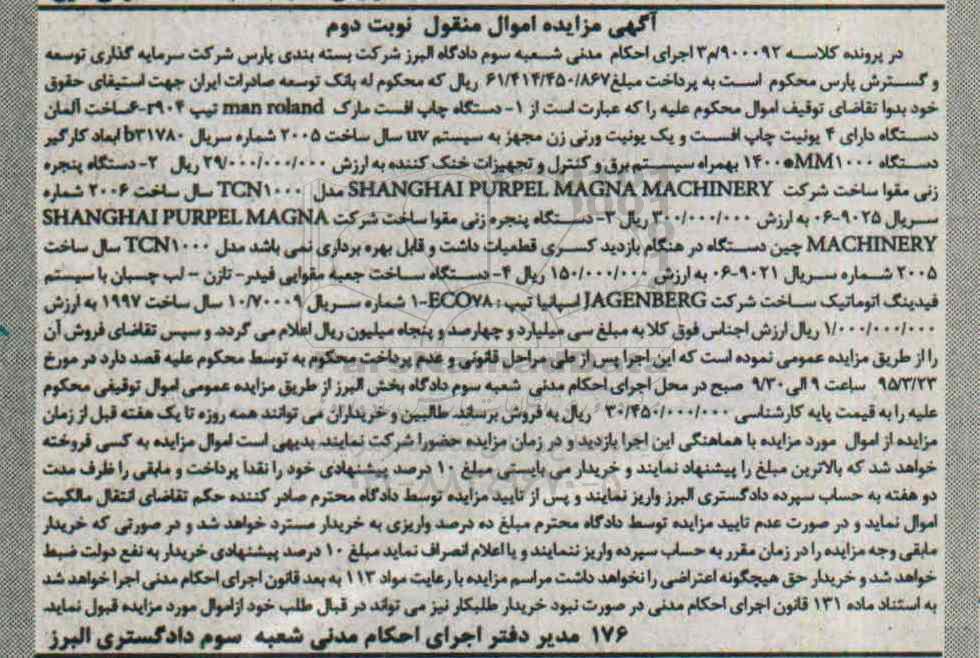 آگهی مزایده اموال منقول نوبت دوم
در پرونده کلاسه ۹۰۰۰۹۲/م۳ اجرای احکام مدنی شعبه سوم دادگاه البرز شرکت بسته بندی پارس شرکت سرمایه گذاری توسعه
و گسترش پارس محکوم است به پرداخت مبلغ۶۱/۴۱۴/۴۵۰/۸۶۷ ریال که محکوم له بانک توسعه صادرات ایران جهت استیفای حقوق
خود بدوا تقاضای توقیف اموال محکوم علیه را که عبارت است از ۱- دستگاه چاپ افست مارک man roland تیپ r۹۰۴-۶ساخت آلمان
دستگاه دارای ۴ یونیت چاپ افست و یک یونیت ورنی زن مجهز به سیستم uv سال ساخت ۲۰۰۵ شماره سریال b۳۱۷۸۰ ابعاد کارگیر
دستگاه ۱۴۰۰*MM۱۰۰۰ بهمراه سیستم برق و کنترل و تجهیزات خنک کننده به ارزش ۲۹/۰۰۰/۰۰۰/۰۰۰ ریال ۲- دستگاه پنجره
زنی مقوا ساخت شرکت SHANGHAI PURPEL MAGNA MACHINERY مدل TCN۱۰۰۰ سال ساخت ۲۰۰۶ شماره
سریال ۹۰۲۵-۰۶ به ارزش ۳۰۰/۰۰۰/۰۰۰ ریال ۳- دستگاه پنجره زنی مقوا ساخت شرکت SHANGHAI PURPEL MAGNA
MACHINERY چین دستگاه در هنگام بازدید کسری قطعیات داشت و قابل بهره برداری نمی باشد مدل TCN۱۰۰۰ سال ساخت
۲۰۰۵ شماره سریال ۹۰۲۱-۰۶ به ارزش ۱۵۰/۰۰۰/۰۰۰ ریال ۴- دستگاه ساخت جعبه مقوایی فیدر- تازن - لب چسبان با سیستم
فیدینگ اتوماتیک ساخت شرکت JAGENBERG اسپانیا تیپ : ECO۷۸-۱ شماره سریال ۱۰/۷۰۰۰۹ سال ساخت ۱۹۹۷ به ارزش
۱/۰۰۰/۰۰۰/۰۰۰ ریال ارزش اجناس فوق کلا به مبلغ سی میلیارد و چهارصد و پنجاه میلیون ریال اعلام می گردد. و سپس تقاضای فروش آن
را از طریق مزایده عمومی نموده است که این اجرا پس از طی مراحل قانونی و عدم پرداخت محکوم به توسط محکوم علیه قصد دارد در مورخ
۹۵/۳/۲۳ ساعت ۹ الی ۹/۳۰ صبح در محل اجرای احکام مدنی شعبه سوم دادگاه بخش البرز از طریق مزایده عمومی اموال توقیفی محکوم
علیه را به قیمت پایه کارشناسی ۳۰/۴۵۰/۰۰۰/۰۰۰ ریال به فروش برساند. طالبین و خریداران می توانند همه روزه تا یک هفته قبل از زمان
مزایده از اموال مورد مزایده با هماهنگی این اجرا بازدید و در زمان مزایده حضورا شرکت نمایند. بدیهی است اموال مزایده به کسی فروخته
خواهد شد که بالاترین مبلغ را پیشنهاد نمایند و خریدار می بایستی مبلغ ۱۰ درصد پیشنهادی خود را نقدا پرداخت و مابقی را ظرف مدت
دو هفته به حساب سپرده دادگستری البرز واریز نمایند و پس از تایید مزایده توسط دادگاه محترم صادر کننده حکم تقاضای انتقال مالکیت
اموال نماید و در صورت عدم تایید مزایده توسط دادگاه محترم مبلغ ده درصد واریزی به خریدار مسترد خواهد شد و در صورتی که خریدار
مابقی وجه مزایده را در زمان مقرر به حساب سپرده واریز ننمایند و یا اعلام انصراف نماید مبلغ ۱۰ درصد پیشنهادی خریدار به نفع دولت ضبط
خواهد شد و خریدار حق هیچگونه اعتراضی را نخواهد داشت مراسم مزایده با رعایت مواد ۱۱۳ به بعد قانون اجرای احکام مدنی اجرا خواهد شد
به استناد ماده ۱۳۱ قانون اجرای احکام مدنی در صورت نبود خریدار طلبکار نیز می تواند در قبال طلب خود ازاموال مورد مزایده قبول نماید.
۱۷۶ مدیر دفتر اجرای احکام مدنی شعبه سوم دادگستری البرز